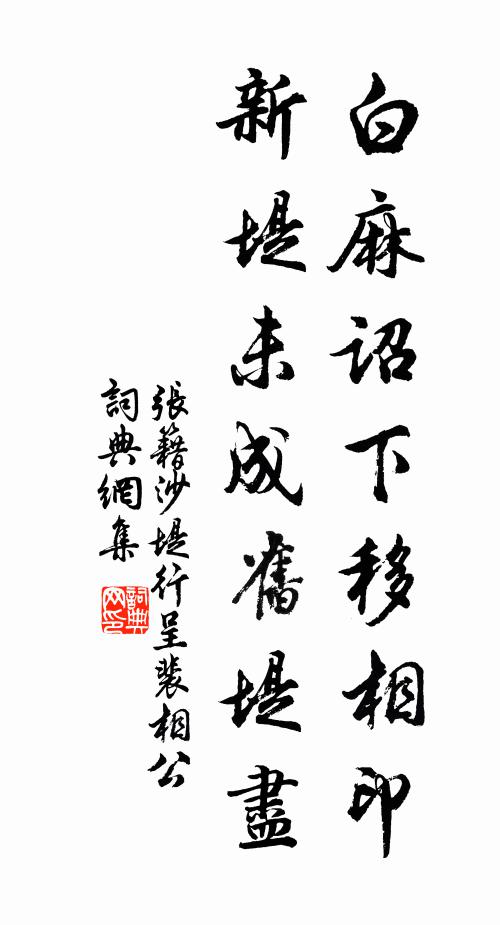 白麻詔下移相印
新堤未成舊堤盡
張籍沙堤行呈裴相公
詞典網集
詞典
网印